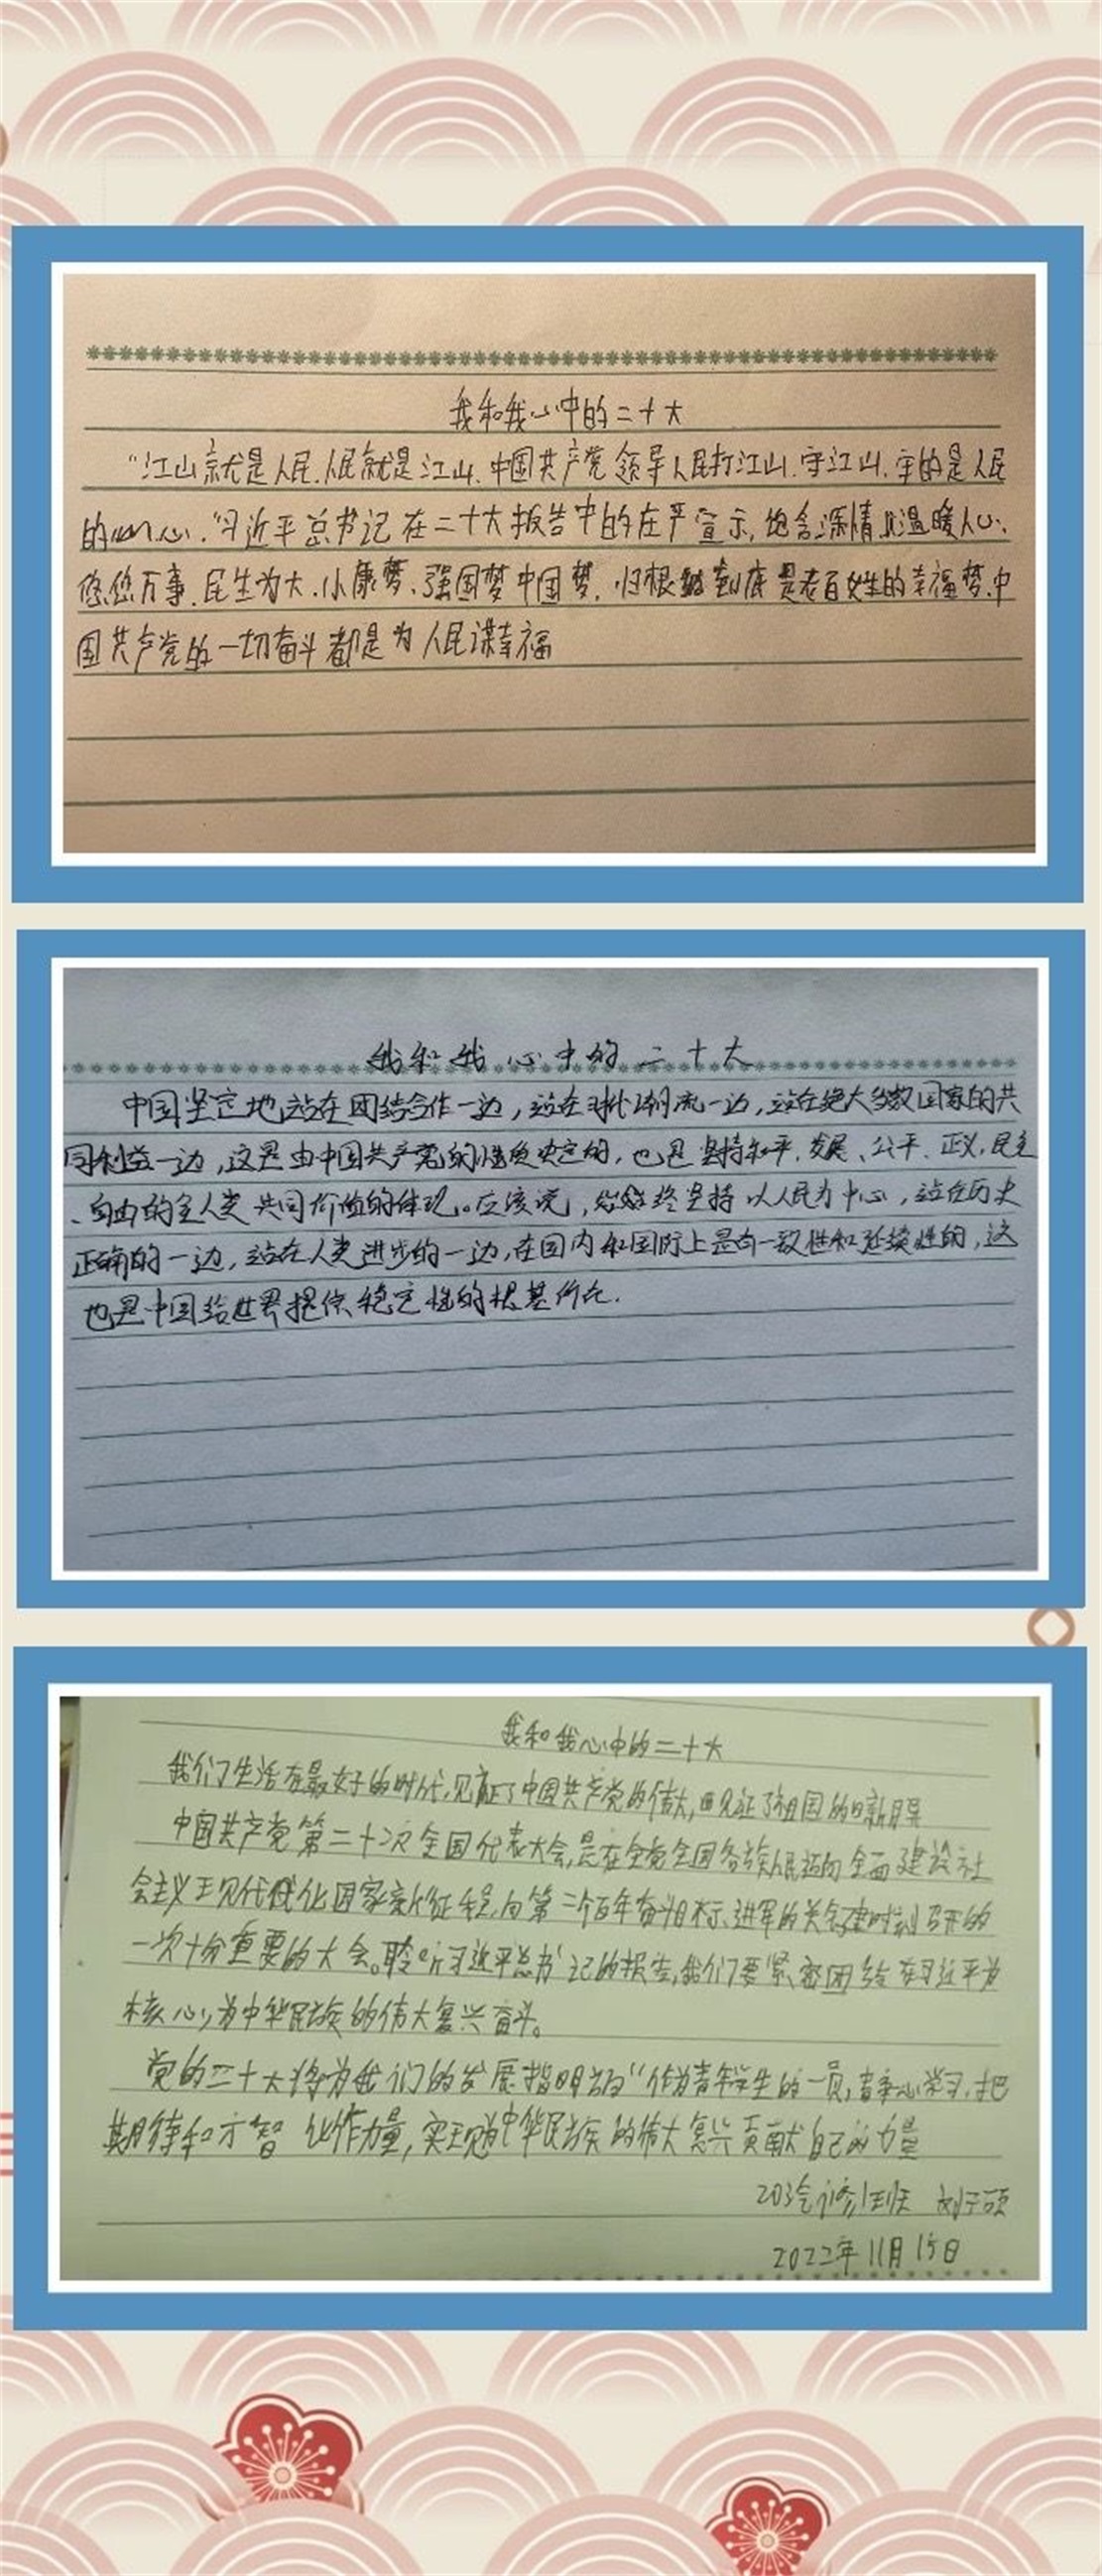 我和我心中的二十大
“江山就是人民.人民就是江山.中国共产党领导人民打江山.守江山.守的是人民
的心.”习近平总书记在二十大报告中的庄严宣示,饱含深情温暖人心.
悠悠万事.民生为大.小康梦.强国梦中国梦.归根到底是老百姓的幸福梦.中
国共产党的一切奋斗都是为人民谋幸福
我和我心中的二十大
中国坚定地站在团结合作一边,站在时代潮流一边,站在绝大多数国家的共
同利益一边,这是由中国共产党的性质决定的,也是坚持和平、发展、公平、正义,民主
、自由的全人类共同价值的体现。应该说,始终坚持以人民为中心,站在历史
正确的一边,站在人类进步的一边,在国内和国际上是有一致性和延续性的,这
也是中国给世界提供稳定性的根基所在.
我和我心中的二十大
我们生活在最好的时代,见证了中国共产党的伟大,见证了祖国的日新月异
中国共产党第二十次全国代表大会,是在全党全国各族人民迈向全面建设社
会主义现代化国家新征程,向第二个百年奋斗目标进军的关键时刻召开的
一次十分重要的大会。聆听习近平总书记的报告,我们要紧密团结在习近平为
核心,为中华民族的伟大复兴奋斗。
党的二十大将为我们的发展指明方向“作为青年学生的一员,专心学习,把
期待和才智化作力量,实现中华民族的伟大复兴贡献自己的力量
班
2022年11月15日